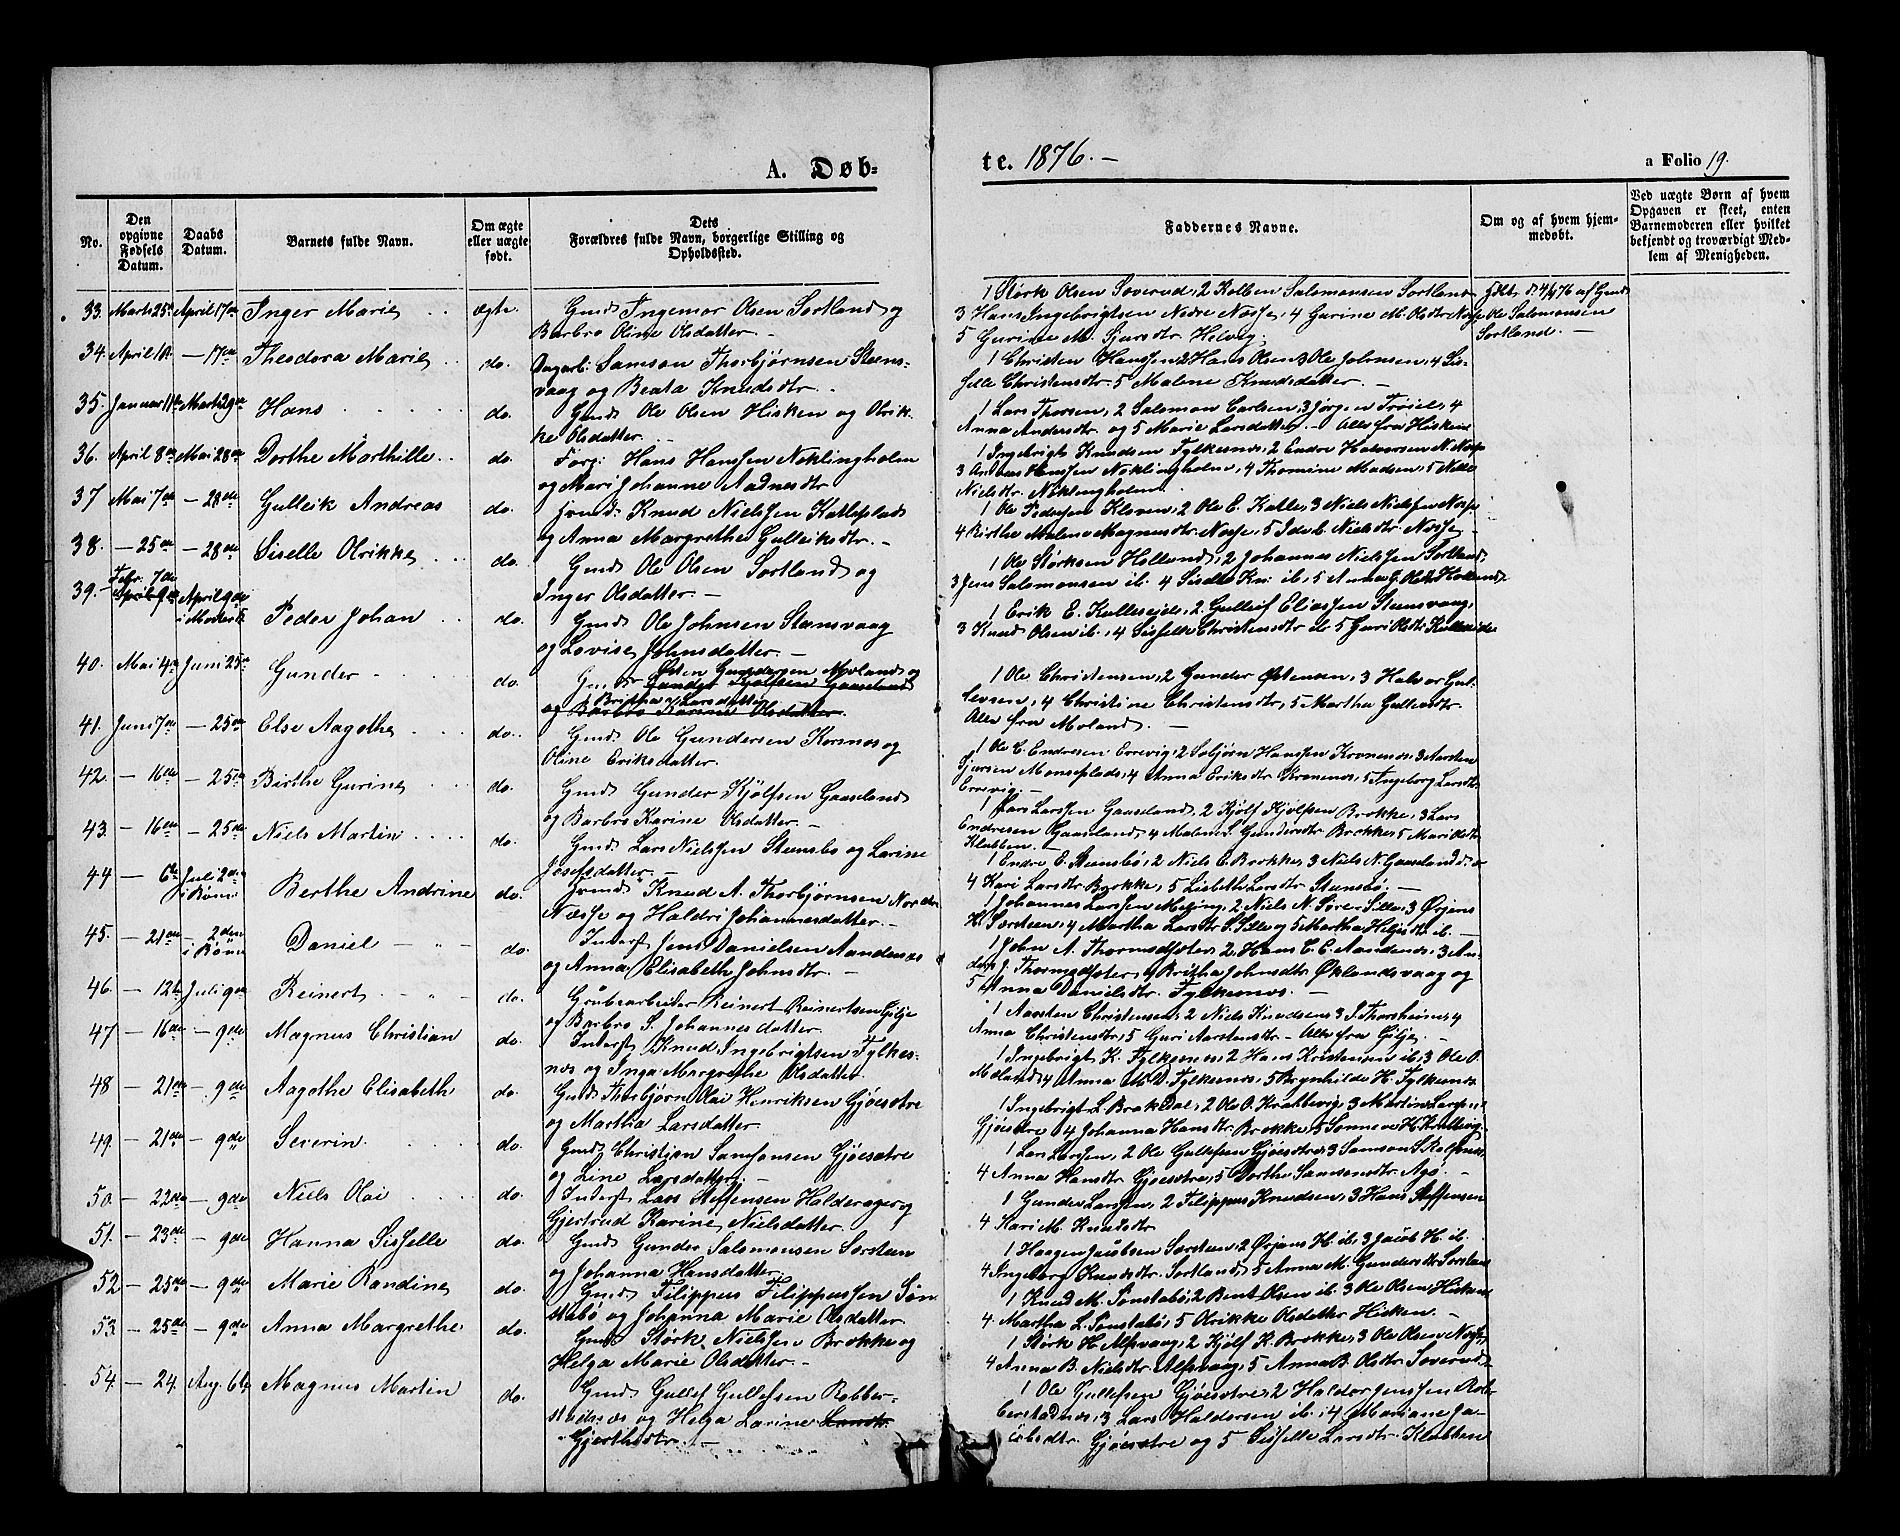 A. Døb-
te. 1876. —
a Folio 19.
No.
Den opgivne Fødsels Datum.
Daabs Datum.
Barnets fulde Navn.
Om ægte eller uægte født.
Dets Forældres fulde Navn, borgerlige Stilling og Opholdssted.
Faddernes Navne.
Om og af hvem hjemmedøbt.
Ved uægte Børn af hvem Opgaven er skeet, enten Barnemoderen eller hvilket bekjendt og troværdigt Medlem af Menigheden.
33. Marts 25 April 17de Inger Marie ægte. Gmd. Ingemor Olsen Sortland og
Barbro Oline Olsdatter. —
1 Størk Olsen Soverud, 2 Kolben Salomonsen Sortland
3 Hans Ingebrigtsen Nedre Nosse, 4 Gurine M. Olsdtr Nosse
5 Gurine M. Sjursdtr Helvig.
Hdbt. d. 4/4 76 af Gmd.
Ole Salomonsen
Sortland. —
34. April 1st — 17de Theodora Marie do. Dagarb. Samson Thorbjørnsen Stems-
vaag og Beata Knudsdtr. —
1 Christen Hanssen 2 Hans Olsen, 3 Ole Johnsen, 4 Sis-
selle Christensdtr. 5 Malene Knudsdatter. —
35. Januar 11te Marts 29de Hans do. Gmd. Ole Olsen Hisken og Olrik-
ke Olsdatter. —
1 Lars Thorsen, 2 Salomon Carlsen, 3 Jørgen Troiel, 4
Anna Andersdtr og 5 Marie Larsdatter. — Alle fra Hisken
36. April 8de Mai 28de Dorthe Marthille do. Forp. Hans Hanssen Noklingholm
og Mari Johanne Aadnesdtr
1 Ingebrigt Knudsen Fylkesnes, 2 Endre Halvorsen N. Nosse
3 Hanssen Noklingholm, 4 Thomine Madsen, 5 Nille
Nielsdtr. Noklingholm.
37 Mai 7de — 28de Gulleik Andreas do. Hmd. Knud Nielssen Katleplads
og Anna Margrethe Gulleiksdtr. —
1 Ole Pedersen Kleven, 2 Ole E. Katle, 3 Niels Nielssen Nosse,
4 Birthe Malene Magnesdtr. Nosse, 5 Ida E. Nielsdtr. Nosse. —
38. — 25de — 28de Siselle Olrikke do. Gmd. Ole Olsen Sortland og
Inger Olsdatter. —
1 Ole Størksen Holland, 2 Johannes Nielssen Sortland,
3 Jens Salomonsen ib. 4 Siselle Kar. ib. 5 Anna G. Olsdtr Holland.
39. — Febr. 7de April 9de April 9de i Moster K. Peder Johan do. Gmd. Ole Johnsen Stemsvaag
og Lovise Johnsdatter. —
1 Erik E. Kalleseide, 2 Gulleif Eliassen Stemsvaag,
3 Knud Olsen ib., 4 Sisselle Christensdtr ib. 5 Guri Olsdtr Kalleseide
40. Mai 4de Juni 25de Gunder do. Gmd. Østen Gundersen Moland og
Gunder Kjølfsen Gaasland
og Britha Larsdatter Barbro Karine Olsdatter.
1 Ole Christensen, 2 Gunder Østensen, 3 Halvor Gul-
levsen, 4 Christine Christensdtr, 5 Martha Gullevsdtr.
Alle fra Moland. —
41. Juni 7de — 25de Else Aagothe do. Gmd. Ole Gundersen Kornnes og
Oline Eriksdatter.
1 Ole E. Endresen Errevig, 2 Solbjørn Hanssen Kronenes, 3 Aarsten
Sjursen Monseplads, 4 Anna Eriksdtr Kronenes, 5 Ingeborg Larsdtr.
Errevig. —
42. — 16de — 25de Birthe Gurine do. Gmd. Gunder Kjølfsen Gaasland
og Barbro Karine Olsdatter. —
1 Lars Larssen Gaasland, 2 Kjølf Kjølfsen Brokke, 3 Lars
Endresen Gaasland, 4 Malene L. Gundersdtr Brokke, 5 Mari Olsdtr
Klubben. —
43. — 16de — 25de Niels Martin do. Gmd. Lars Nielssen Stemsbø og Larine
Josefsdatter. —
1 Endre E. Stemsbø, 2 Niels E. Brokke, 3 Niels N. Gaasland
4 Kari Larsdtr Brokke, 5 Lisbeth Larsdtr Stemsbø. —
44 — 6te Juli 2den i Rønn Berthe Andrine do. Hmd. Knud A. Thorbjørnsen Nordre
Næsse og Haldri Johannesdatter. —
1 Johannes Larssen Meling, 2 Niels N. Søre-Sille, 3 Ørjans
H. Sørsteen, 4 Martha Larsdtr S. Sille og 5 Martha Heljesdtr ib. —
45. — 21de — 2den i Røne Daniel do. Inderst Jens Danielsen Aandenes
og Anna Elisabeth Johnsdtr. —
1 John A. Thormodsæter, 2 Hans E. E. Aandenes, 3 An-
ders J. Thormodsæter, 4 Britha Johnsdtr Øklandsvaag og
5 Anna Danielsdtr. Fylkesnes. —
46. — 12te Juli 9de Reinert do. Grubearbeider Reinert Reinertsen Gilje
og Barbro S. Johannesdatter.
1 Aarsten Christensen, 2 Niels Knudsen, 3 J. Thorsheim, 4
Anna Christensdtr, 5 Guri Aarstensdtr — Alle fra Gilje. —
47 — 16de — 9de Magnus Christian do. Inderst Knud Ingebrigtsen Fylkes-
nes og Inga Margrethe Olsdatter.
1 Ingebrigt K. Fylkesnes, 2 Hans Kristensen ib. 3 Ole O.
Moland, 4 Anna M. D. Fylkesnes, 5 Brynhilde H. Fylkesnes.
48 — 21de — 9de Aagothe Elisabeth do. Gmd. Thorbjørn Olai Henriksen Gjøsætre
og Martha Larsdatter
1 Ingebrigt L. Brokdal, 2 Ole O. Krallevig, 3 Martin Larssen
Gjøsætre 4 Johanna Hansdtr Brokke, 5 Sonneve H. Krallevig.
49. — 21de — 9de Severin do. Gmd. Christian Samsonsen Gjøsætre
og Line Larsdatter. —
1 Lars Larssen, 2 Ole Gullefsen Gjøsætre, 3 Samson S. Rolfsnes
4 Anna Hansdtr Gjøsætre, 5 Dorthe Samsonsdtr. Agø. —
50. — 22de — 9de Niels Olai do. Inderst Lars Steffensen Halderager og
Gjertrud Karine Nielsdatter.
1 Gunder Larssen, 2 Filippus Knudsen, 3 Hans Steffensen
4 Kari M. Knudsdtr.
51. — 23de — 9de Hanna Sisselle do. Gmd. Gunder Salomonsen Sørsteen
og Johanna Hansdatter.
1 Haagen Jacobsen Sørsteen, 2 Ørjans H. ib. 3 Jacob H. ib.
4 Ingeborg Knudsdtr. Sortland, 5 Anna M. Gundersdtr Sørsteen
52 — 25de — 9de Marie Randine do. Gmd. Filippus Filippussen Søn-
stabø og Johanna Marie Olsdatter.
1 Knud M. Sønstabø, 2 Bent Olsen ib. 3 Ole Olsen Hisken
4. Martha L. Sønstabø, 5 Olrikke Olsdatter Hisken. —
53. — 25de — 9de Anna Margrethe do. Gmd. Størk Nielssen Brokke og
Helga Marie Olsdatter. —
1 Størk H. Alfsvaag, 2 Kjølf K. Brokke, 3 Ole Olsen Nosse,
4 Anna B. Nielsdtr. Alfsvaag, 5 Anna B. Olsdtr. Soverud.
54. — 24. Aug. 6te Magnus Martin do. Gmd. Gullef Gullefsen Robber-
stadnes og Helga Larine
Gjerthsdtr. —
1 Ole Gullefsen Gjøsætre, 2 Haldor Jenssen Rob-
berstadnes, 3 Lars Haldorsen ib. 4 Mariane Ja-
cobsdtr. Gjøsætre og 5 Sisselle Larsdtr. Klubben